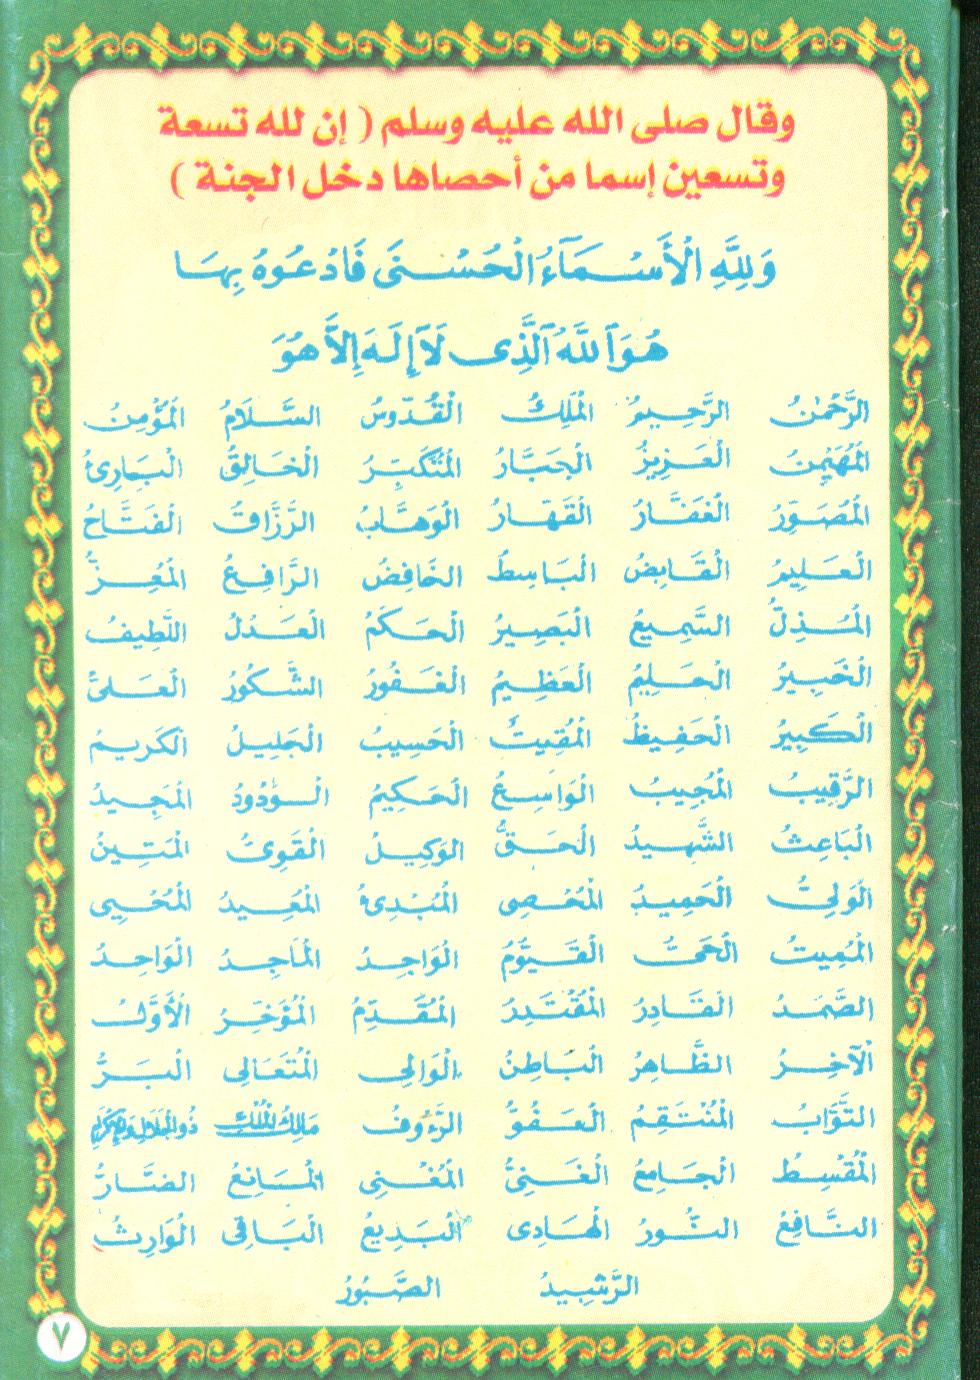 وقال صلى الله عليه وسلم ( إن لله تسعة
وتسعين إسما من أحصاها دخل الجنة )
وَلِلَّهِ الْأَسْمَآءُ الْحُسْنَى فَادْعُوهُ بِهَا
هُوَ اللَّهُ الَّذِى لَآ إِلَهَ إِلَّا هُوَ
الرَّحْمٰنُ الرَّحِيمُ الْمَلِكُ الْقُدُّوسُ السَّلَامُ الْمُؤْمِنُ
الْمُهَيْمِنُ الْعَزِيزُ الْجَبَّارُ الْمُتَكَبِّرُ الْخَالِقُ الْبَارِئُ
الْمُصَوِّرُ الْغَفَّارُ الْقَهَّارُ الْوَهَّابُ الرَّزَّاقُ الْفَتَّاحُ
الْعَلِيمُ الْقَابِضُ الْبَاسِطُ الْخَافِضُ الرَّافِعُ الْمُعِزُّ
الْمُذِلُّ السَّمِيعُ الْبَصِيرُ الْحَكَمُ الْعَدْلُ اللَّطِيفُ
الْخَبِيرُ الْحَلِيمُ الْعَظِيمُ الْغَفُورُ الشَّكُورُ الْعَلىُّ
الْكَبِيرُ الْحَفِيظُ الْمُقِيتُ الْحَسِيبُ الْجَلِيلُ الْكَرِيمُ
الرَّقِيبُ الْمُجِيبُ الْوَاسِعُ الْحَكِيمُ الْوَدُودُ الْمَجِيدُ
الْبَاعِثُ الشَّهِيدُ الْحَقُّ الْوَكِيلُ الْقَوِىُّ الْمَتِينُ
الْوَلِىُّ الْحَمِيدُ الْمُحْصِى الْمُبْدِئُ الْمُعِيدُ الْمُحْيِى
الْمُمِيتُ الْحَىُّ الْقَيُّومُ الْوَاجِدُ الْمَاجِدُ الْوَاحِدُ
الصَّمَدُ الْقَادِرُ الْمُقْتَدِرُ الْمُقَدِّمُ الْمُؤَخِّرُ الْأَوَّلُ
الْآخِرُ الظَّاهِرُ الْبَاطِنُ الْوَالِى الْمُتَعَالِى الْبَرُّ
التَّوَّابُ الْمُنْتَقِمُ الْعَفُوُّ الرَّءُوفُ مَالِكُ الْمُلْكِ ذُو الْجَلَالِ وَالْإِكْرَامِ
الْمُقْسِطُ الْجَامِعُ الْغَنِىُّ الْمُغْنِى الْمَانِعُ الضَّارُّ
النَّافِعُ النُّورُ الْهَادِى الْبَدِيعُ الْبَاقِى الْوَارِثُ
الرَّشِيدُ الصَّبُورُ
٧